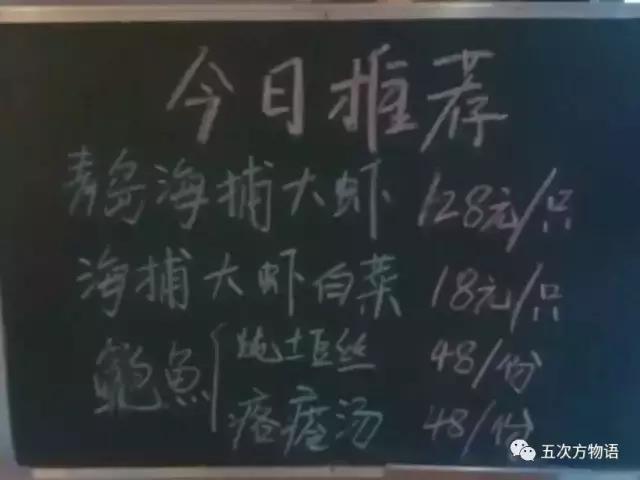 今日推荐
青岛海捕大虾 128元/只
海捕大虾白菜 18元/只
鲍魚 炖土豆丝 48/份
疙瘩汤 48/份
五次方物语